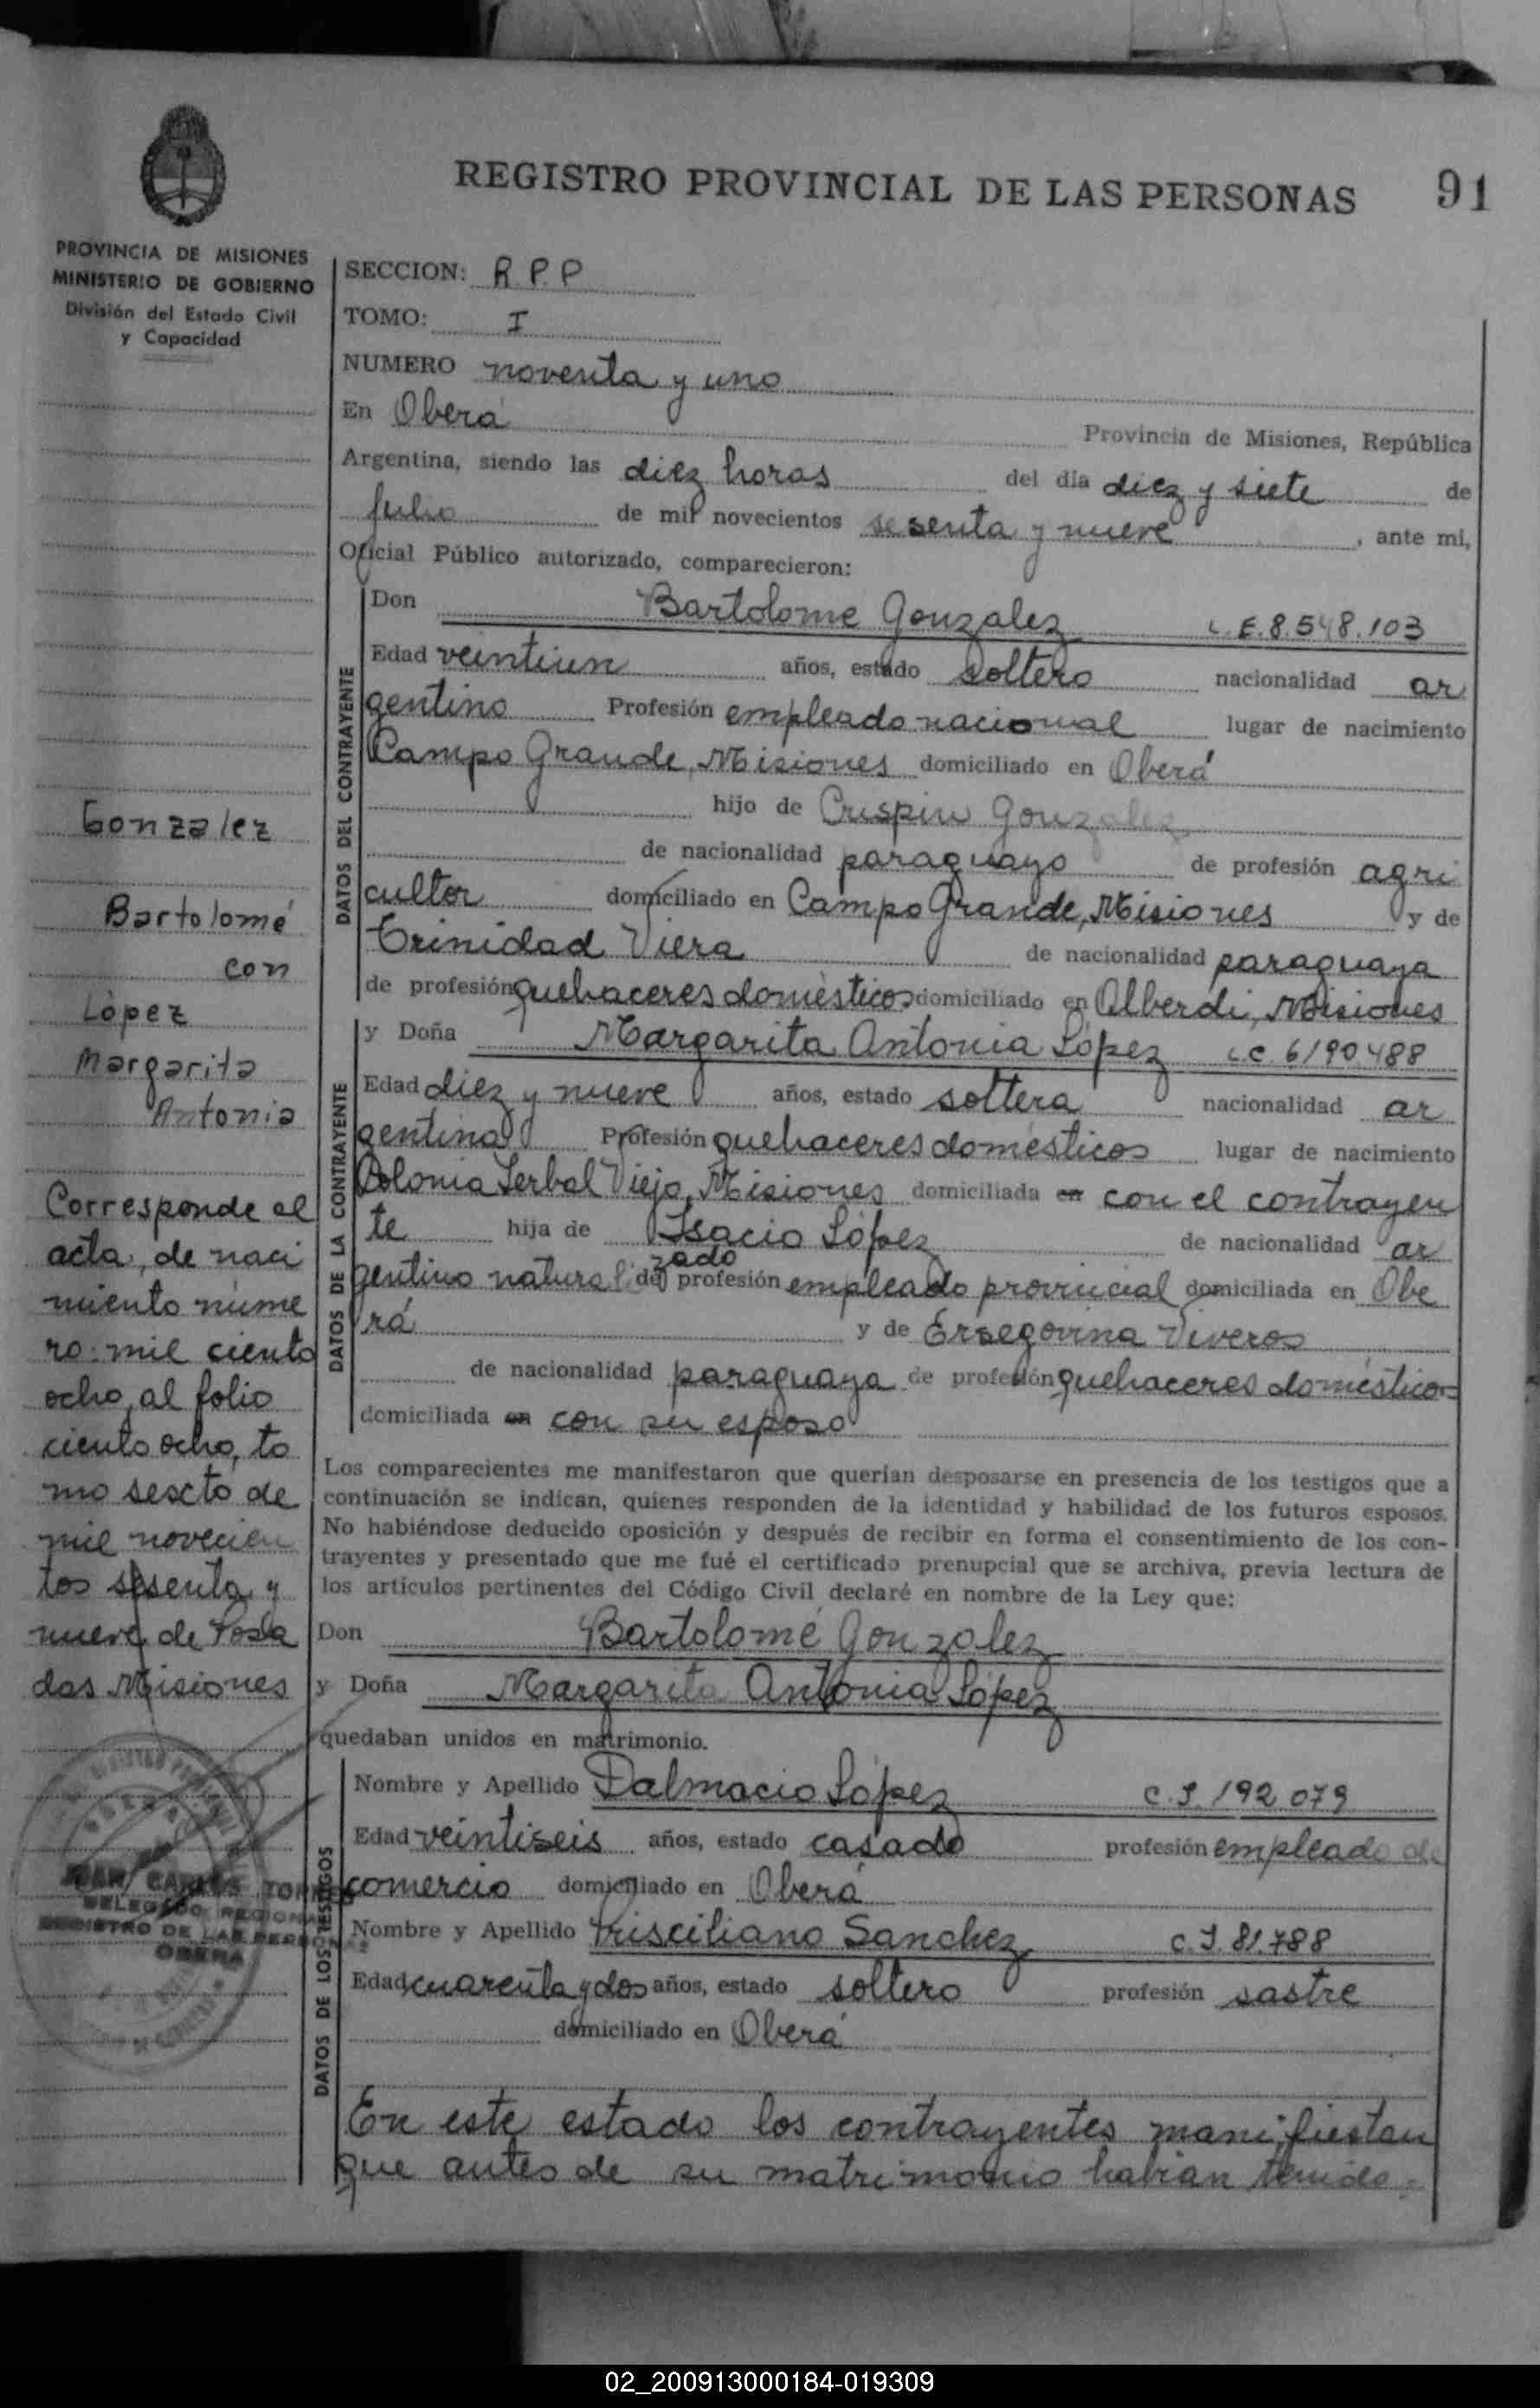 REGISTRO PROVINCIAL DE LAS PERSONAS 91
PROVINCIA DE MISIONES
MINISTERIO DE GOBIERNO
División del Estado Civil
y Capacidad
SECCION: R.P.P
TOMO: I
NUMERO noventa y uno
En Oberá Provincia de Misiones, República
Argentina, siendo las diez horas del día diez y siete de
Julio de mil novecientos sesenta y nueve, ante mi,
Oficial Público autorizado, comparecieron:
DATOS DEL CONTRAYENTE
Don Bartolome Gonzalez L.E. 8.548.103
Edad veintiun años, estado soltero nacionalidad ar
gentino Profesión empleado nacional lugar de nacimiento
Campo Grande, Misiones domiciliado en Oberá
hijo de Crispin Gonzalez
de nacionalidad paraguayo de profesión agri
cultor domiciliado en Campo Grande, Misiones y de
Trinidad Viera de nacionalidad paraguaya
de profesión quehaceres domésticos domiciliado en Alberdi, Misiones
DATOS DE LA CONTRAYENTE
y Doña Margarita Antonia López L.C. 6190.488
Edad diez y nueve años, estado soltera nacionalidad ar
gentina Profesión quehaceres domésticos lugar de nacimiento
Colonia Yerbal Viejo, Misiones domiciliada en con el contrayen
te hija de Isacio López de nacionalidad ar
gentino naturalizado de profesión empleado provincial domiciliada en Obe
rá y de Ersegovina Viveros
de nacionalidad paraguaya de profesión quehaceres domésticos
domiciliada en con su esposo
Los comparecientes me manifestaron que querían desposarse en presencia de los testigos que a
continuación se indican, quienes responden de la identidad y habilidad de los futuros esposos.
No habiéndose deducido oposición y después de recibir en forma el consentimiento de los con-
trayentes y presentado que me fué el certificado prenupcial que se archiva, previa lectura de
los artículos pertinentes del Código Civil declaré en nombre de la Ley que:
Don Bartolomé Gonzalez
y Doña Margarita Antonia López
quedaban unidos en matrimonio.
DATOS DE LOS TESTIGOS
Nombre y Apellido Dalmacio López C.I. 192.079
Edad veintiseis años, estado casado profesión empleado de
comercio domiciliado en Oberá
Nombre y Apellido Prisciliano Sanchez C.I. 81.788
Edad cuarenta y dos años, estado soltero profesión sastre
domiciliado en Oberá
En este estado los contrayentes manifiestan
que antes de su matrimonio habian tenido
Gonzalez
Bartolomé
con
López
Margarita
Antonia
Corresponde al
acta, de naci
miento núme
ro: mil ciento
ocho, al folio
ciento ocho, to
mo sexto de
mil novecien
tos sesenta y
nueve de Posa
das Misiones
JUAN CARLOS TORRES
DELEGADO REGIONAL
REGISTRO DE LAS PERSONAS
OBERA
02_200913000184-019309